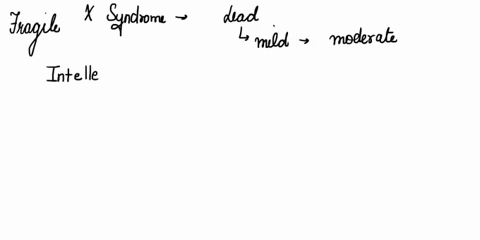 Fragile X Syndrome → Lead
↳ mild → moderate
Intelle